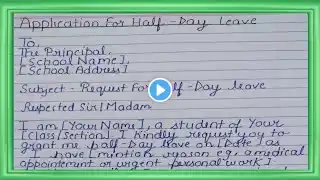 Application For Half-Day Leave
To,
The Principal,
[School Name],
[School Address]
Subject - Request For Half-Day leave
Respected Sir/Madam
I am [Your Name], a student of Your
[Class/Section]. I kindly request you to
grant me half-Day leave on [Date] as
I have [mention reason e.g. a medical
appointement or urgent personal work]